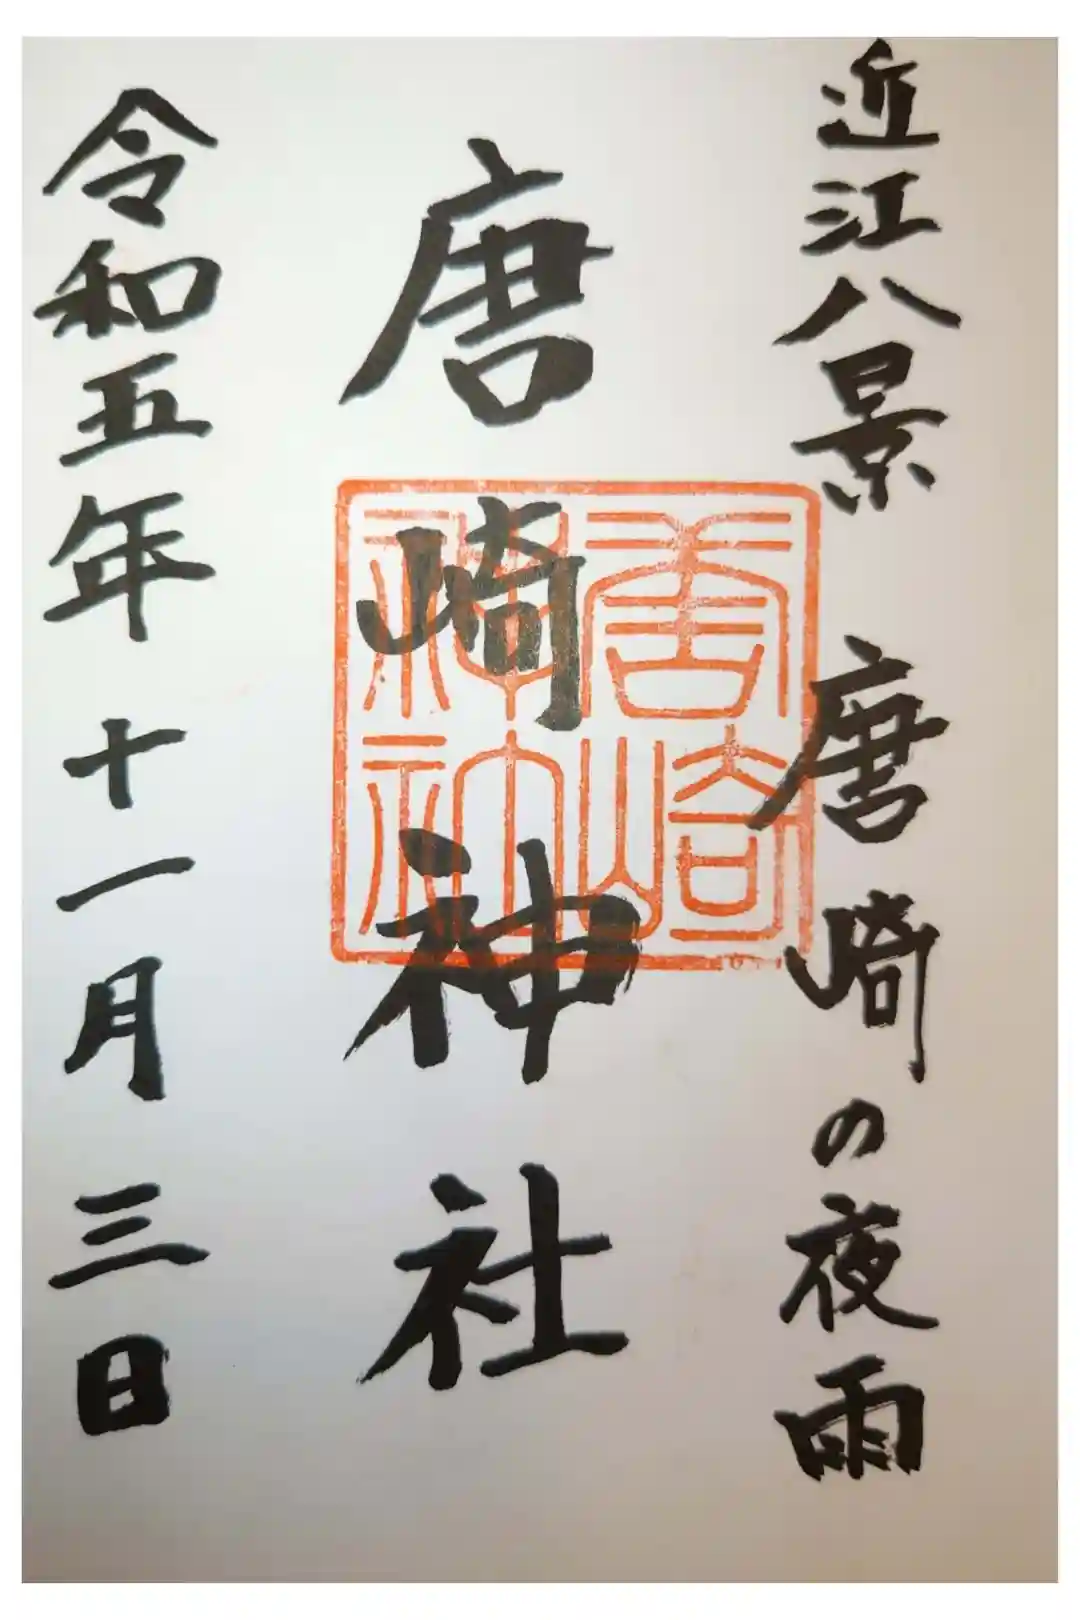 近江八景 唐崎の夜雨
唐崎神社
唐崎
神社
令和五年十一月三日